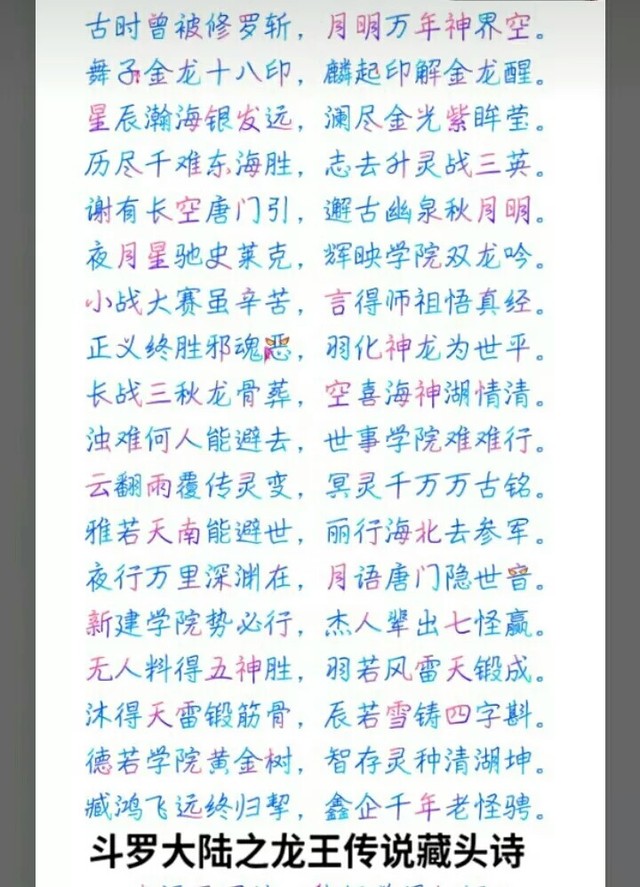 古时曾被修罗斩，月明万年神界空。
舞子金龙十八印，麟起印解金龙醒。
星辰瀚海银发远，澜尽金光紫眸莹。
历尽千难东海胜，志去升灵战三英。
谢有长空唐门引，邂古幽泉秋月明。
夜月星驰史莱克，辉映学院双龙吟。
小战大赛虽辛苦，言得师祖悟真经。
正义终胜邪魂恶，羽化神龙为世平。
长战三秋龙骨葬，空喜海神湖情清。
浊难何人能避去，世事学院难难行。
云翻雨覆传灵变，冥灵千万万古铭。
雅若天南能避世，丽行海北去参军。
夜行万里深渊在，月语唐门隐世音。
新建学院势必行，杰人辈出七怪赢。
无人料得五神胜，羽若风雷天锻成。
沐得天雷锻筋骨，辰若雪铸四字斟。
德若学院黄金树，智存灵种清湖坤。
臧鸿飞远终归挈，鑫企千年老怪骋。
斗罗大陆之龙王传说藏头诗